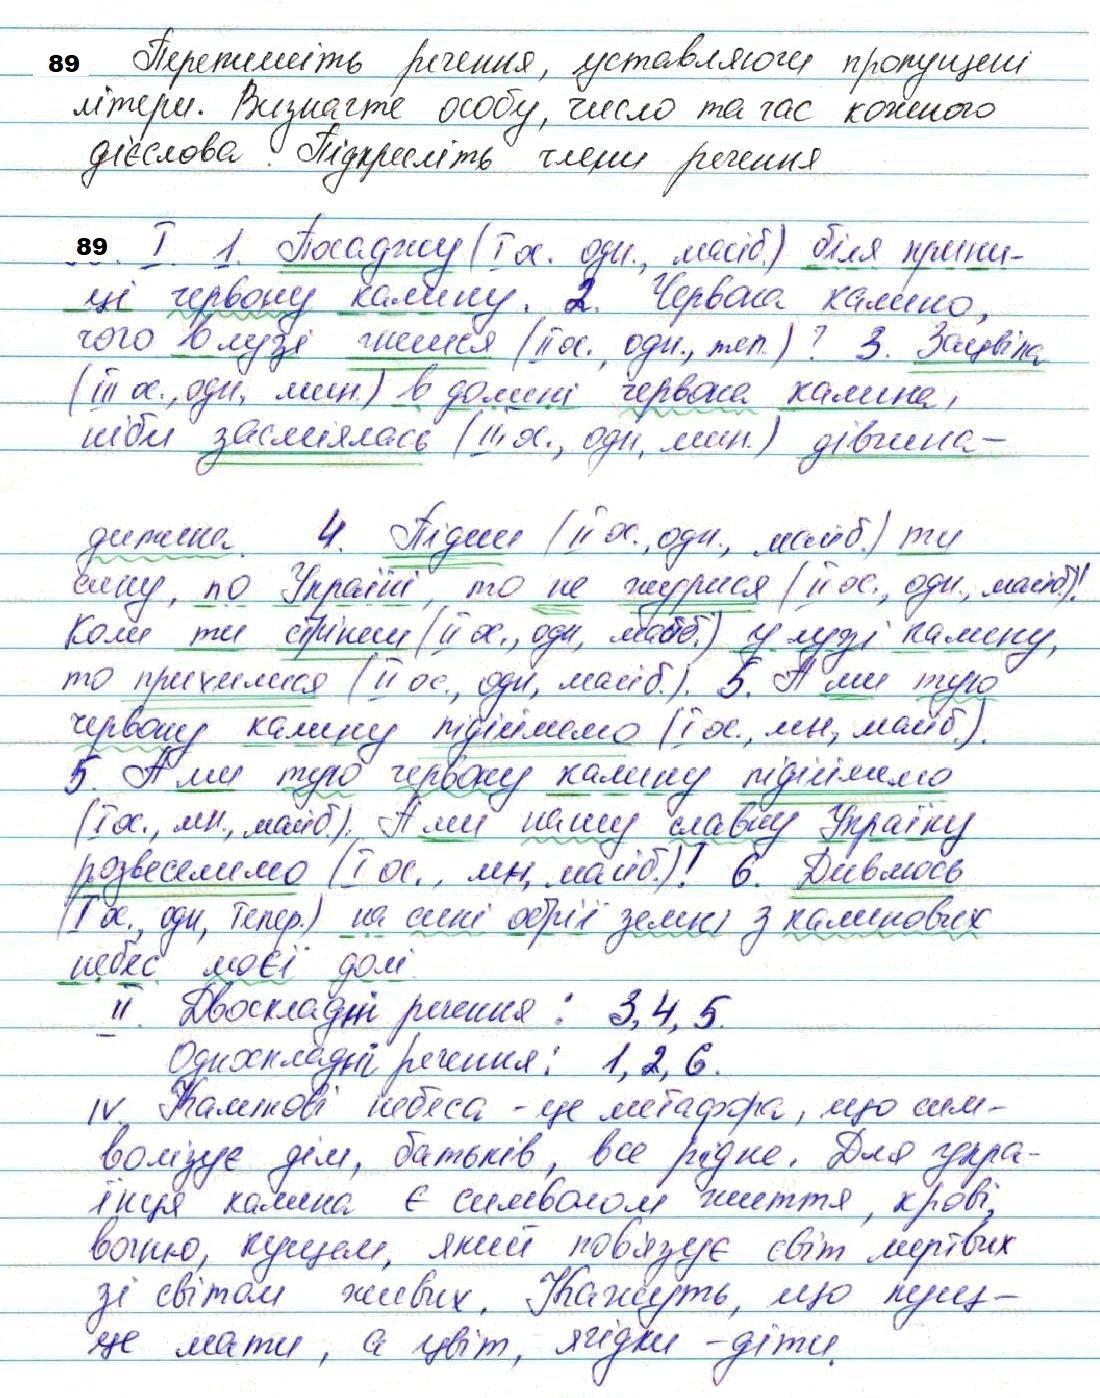 89 Перепишіть речення, уставляючи пропущені
літери. Визначте особу, число та час кожного
дієслова. Підкресліть члени речення
89. І. 1. Посаджу (І ос. одн., майб.) біля крини-
ці червону калину. 2. Червона калино,
чого в лузі гнешся (ІІ ос., одн., теп.)? 3. Зацвіла
(ІІІ ос., одн, мин.) в долині червона калина,
ніби засміялась (ІІІ ос., одн, мин.) дівчина-
дитина. 4. Підеш (ІІ ос., одн., майб.) ти
сину, по Україні, то не журися (ІІ ос., одн., майб.)!
Коли ти стрінеш (ІІ ос., одн, майб.) у лузі калину,
то прихилися (ІІ ос., одн, майб.). 5. А ми тую
червону калину підіймемо (І ос., мн, майб.).
5. А ми тую червону калину підіймемо
(І ос., мн., майб.). А ми нашу славну Україну
розвеселимо (І ос., мн, майб.)! 6. Дивлюсь
(І ос., одн, тепер.) на сині обрії землі з калинових
небес моєї долі.
ІІ. Двоскладні речення: 3, 4, 5.
Односкладні речення: 1, 2, 6.
IV. Калинові небеса - це метафора, що сим-
волізує дім, батьків, все рідне. Для украї-
їнця калина є символом життя, крові,
вогню, кущем, який пов'язує світ мертвих
зі світом живих. Кажуть, що кущ-
це мати, а цвіт, ягідки - діти.